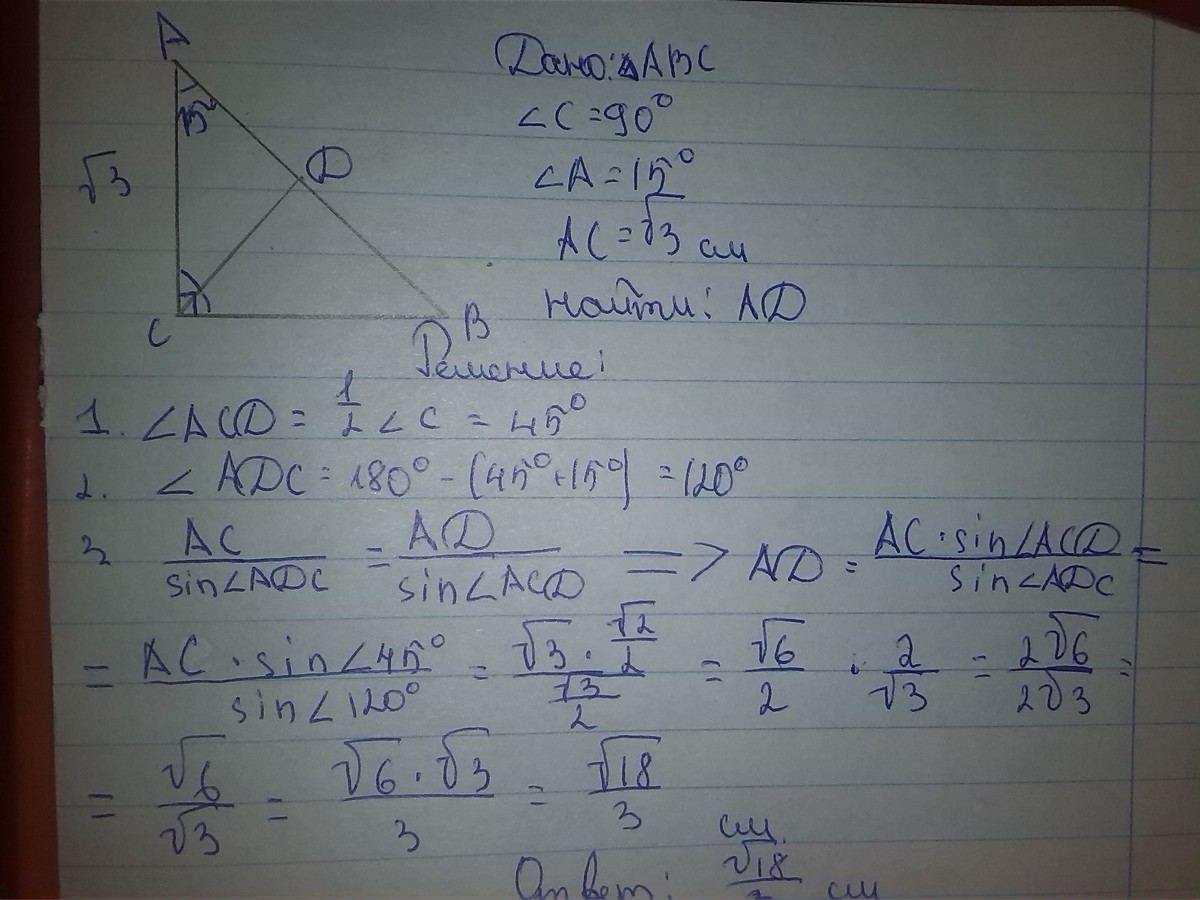 A
Дано: ΔABC
∠C = 90°
∠A = 15°
√3
D
AC = √3 см
Найти: AD
C
B
Решение:
1. ∠ACD = 1/2 ∠C = 45°
2. ∠ADC = 180° - (45° + 15°) = 120°
3 AC/sin∠ADC = AD/sin∠ACD => AD = AC · sin∠ACD/sin∠ADC =
= AC · sin∠45°/sin∠120° = (√3 · √2/2)/(√3/2) = √6/2 · 2/√3 = 2√6/2√3 =
= √6/√3 = √6 · √3/3 = √18/3 см.
Ответ: √18/3 см